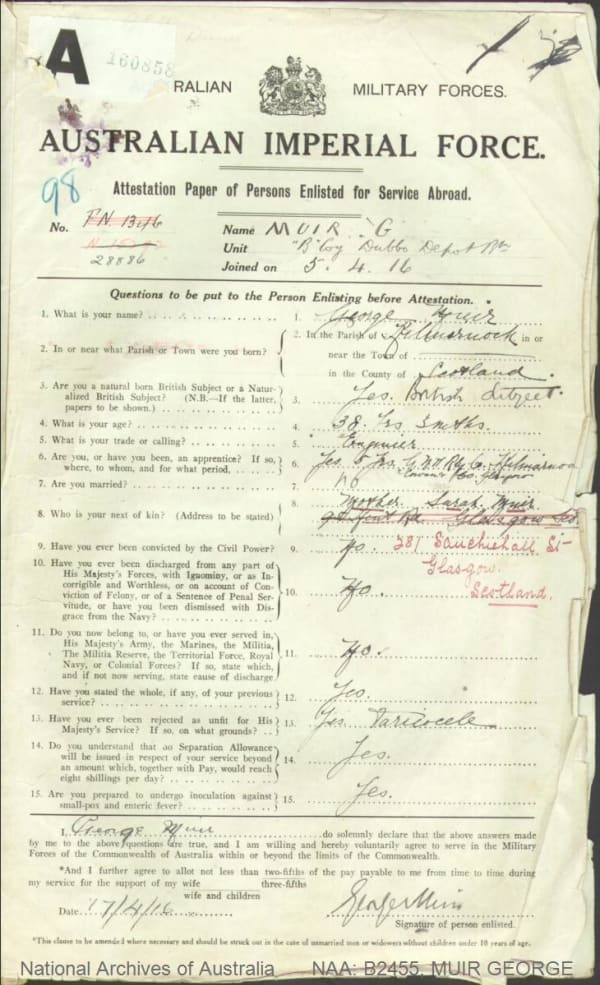 A
160858
RALIAN MILITARY FORCES.
AUSTRALIAN IMPERIAL FORCE.
98
Attestation Paper of Persons Enlisted for Service Abroad.
No. 28886
Name MUIR. G
Unit "B" Coy Dubbo Depot Bn
Joined on 5. 4. 16
Questions to be put to the Person Enlisting before Attestation.
1. What is your name? 1. George Muir
2. In or near what Parish or Town were you born? 2. In the Parish of Kilmarnock in or
near the Town of
in the County of Scotland.
3. Are you a natural born British Subject or a Natu-
ralized British Subject? (N.B.—If the latter,
papers to be shown.) 3. Yes. British Subject.
4. What is your age? 4. 38 Yrs 5 mths.
5. What is your trade or calling? 5. Engineer
6. Are you, or have you been, an apprentice? If so,
where, to whom, and for what period. 6. Yes 5 Yrs. Ry Co. Kilmarnock
7. Are you married? 7. No
8. Who is your next of kin? (Address to be stated) 8. Mother Sarah Muir
Glasgow Sco
9. Have you ever been convicted by the Civil Power? 9. No. 281 Sauchiehall St
Glasgow.
Scotland.
10. Have you ever been discharged from any part of
His Majesty's Forces, with Ignominy, or as In-
corrigible and Worthless, or on account of Con-
viction of Felony, or of a Sentence of Penal Ser-
vitude, or have you been dismissed with Dis-
grace from the Navy? 10. No.
11. Do you now belong to, or have you ever served in,
His Majesty's Army, the Marines, the Militia,
The Militia Reserve, the Territorial Force, Royal
Navy, or Colonial Forces? If so, state which,
and if not now serving, state cause of discharge 11. No.
12. Have you stated the whole, if any, of your previous
service? 12. Yes.
13. Have you ever been rejected as unfit for His
Majesty's Service? If so, on what grounds? 13. Yes. Varicocele
14. Do you understand that no Separation Allowance
will be issued in respect of your service beyond
an amount which, together with Pay, would reach
eight shillings per day? 14. Yes.
15. Are you prepared to undergo inoculation against
small-pox and enteric fever? 15. Yes.
I, George Muir do solemnly declare that the above answers made
by me to the above questions are true, and I am willing and hereby voluntarily agree to serve in the Military
Forces of the Commonwealth of Australia within or beyond the limits of the Commonwealth.
*And I further agree to allot not less than two-fifths of the pay payable to me from time to time during
three-fifths
my service for the support of my wife
wife and children
Date 17/4/16 George Muir
Signature of person enlisted.
*This clause to be amended where necessary and should be struck out in the case of unmarried men or widowers without children under 18 years of age.
National Archives of Australia NAA: B2455, MUIR GEORGE